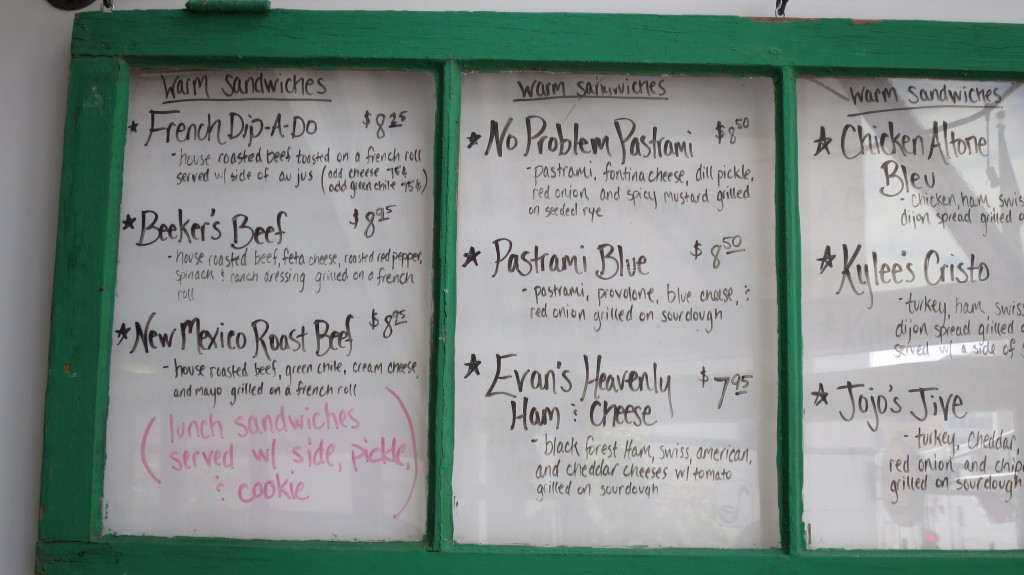 Warm Sandwiches
★ French Dip-A-Do $8 25
- house roasted beef toasted on a french roll
served w/ side of au jus (add cheese 75¢
add green chile 75¢)
★ Beeker's Beef $8 95
- house roasted beef, feta cheese, roasted red pepper,
spinach & ranch dressing grilled on a french
roll
★ New Mexico Roast Beef $8 95
- house roasted beef, green chile, cream cheese,
and mayo grilled on a french roll
(lunch sandwiches
served w/ side, pickle,
& cookie)
Warm Sandwiches
★ No Problem Pastrami $8 50
- pastrami, fontina cheese, dill pickle,
red onion and spicy mustard grilled
on seeded rye
★ Pastrami Blue $8 50
- pastrami, provolone, blue cheese, &
red onion grilled on sourdough
★ Evan's Heavenly $7 95
Ham & Cheese
- black forest Ham, swiss, american,
and cheddar cheeses w/ tomato
grilled on sourdough
Warm Sandwiches
★ Chicken Altone
Bleu
- chicken, ham, swis
dijon spread grilled
★ Kylee's Cristo
- turkey, ham, swiss
dijon spread grilled
served w/ a side of
★ Jojo's Jive
- turkey, cheddar,
red onion and chip
grilled on sourdough